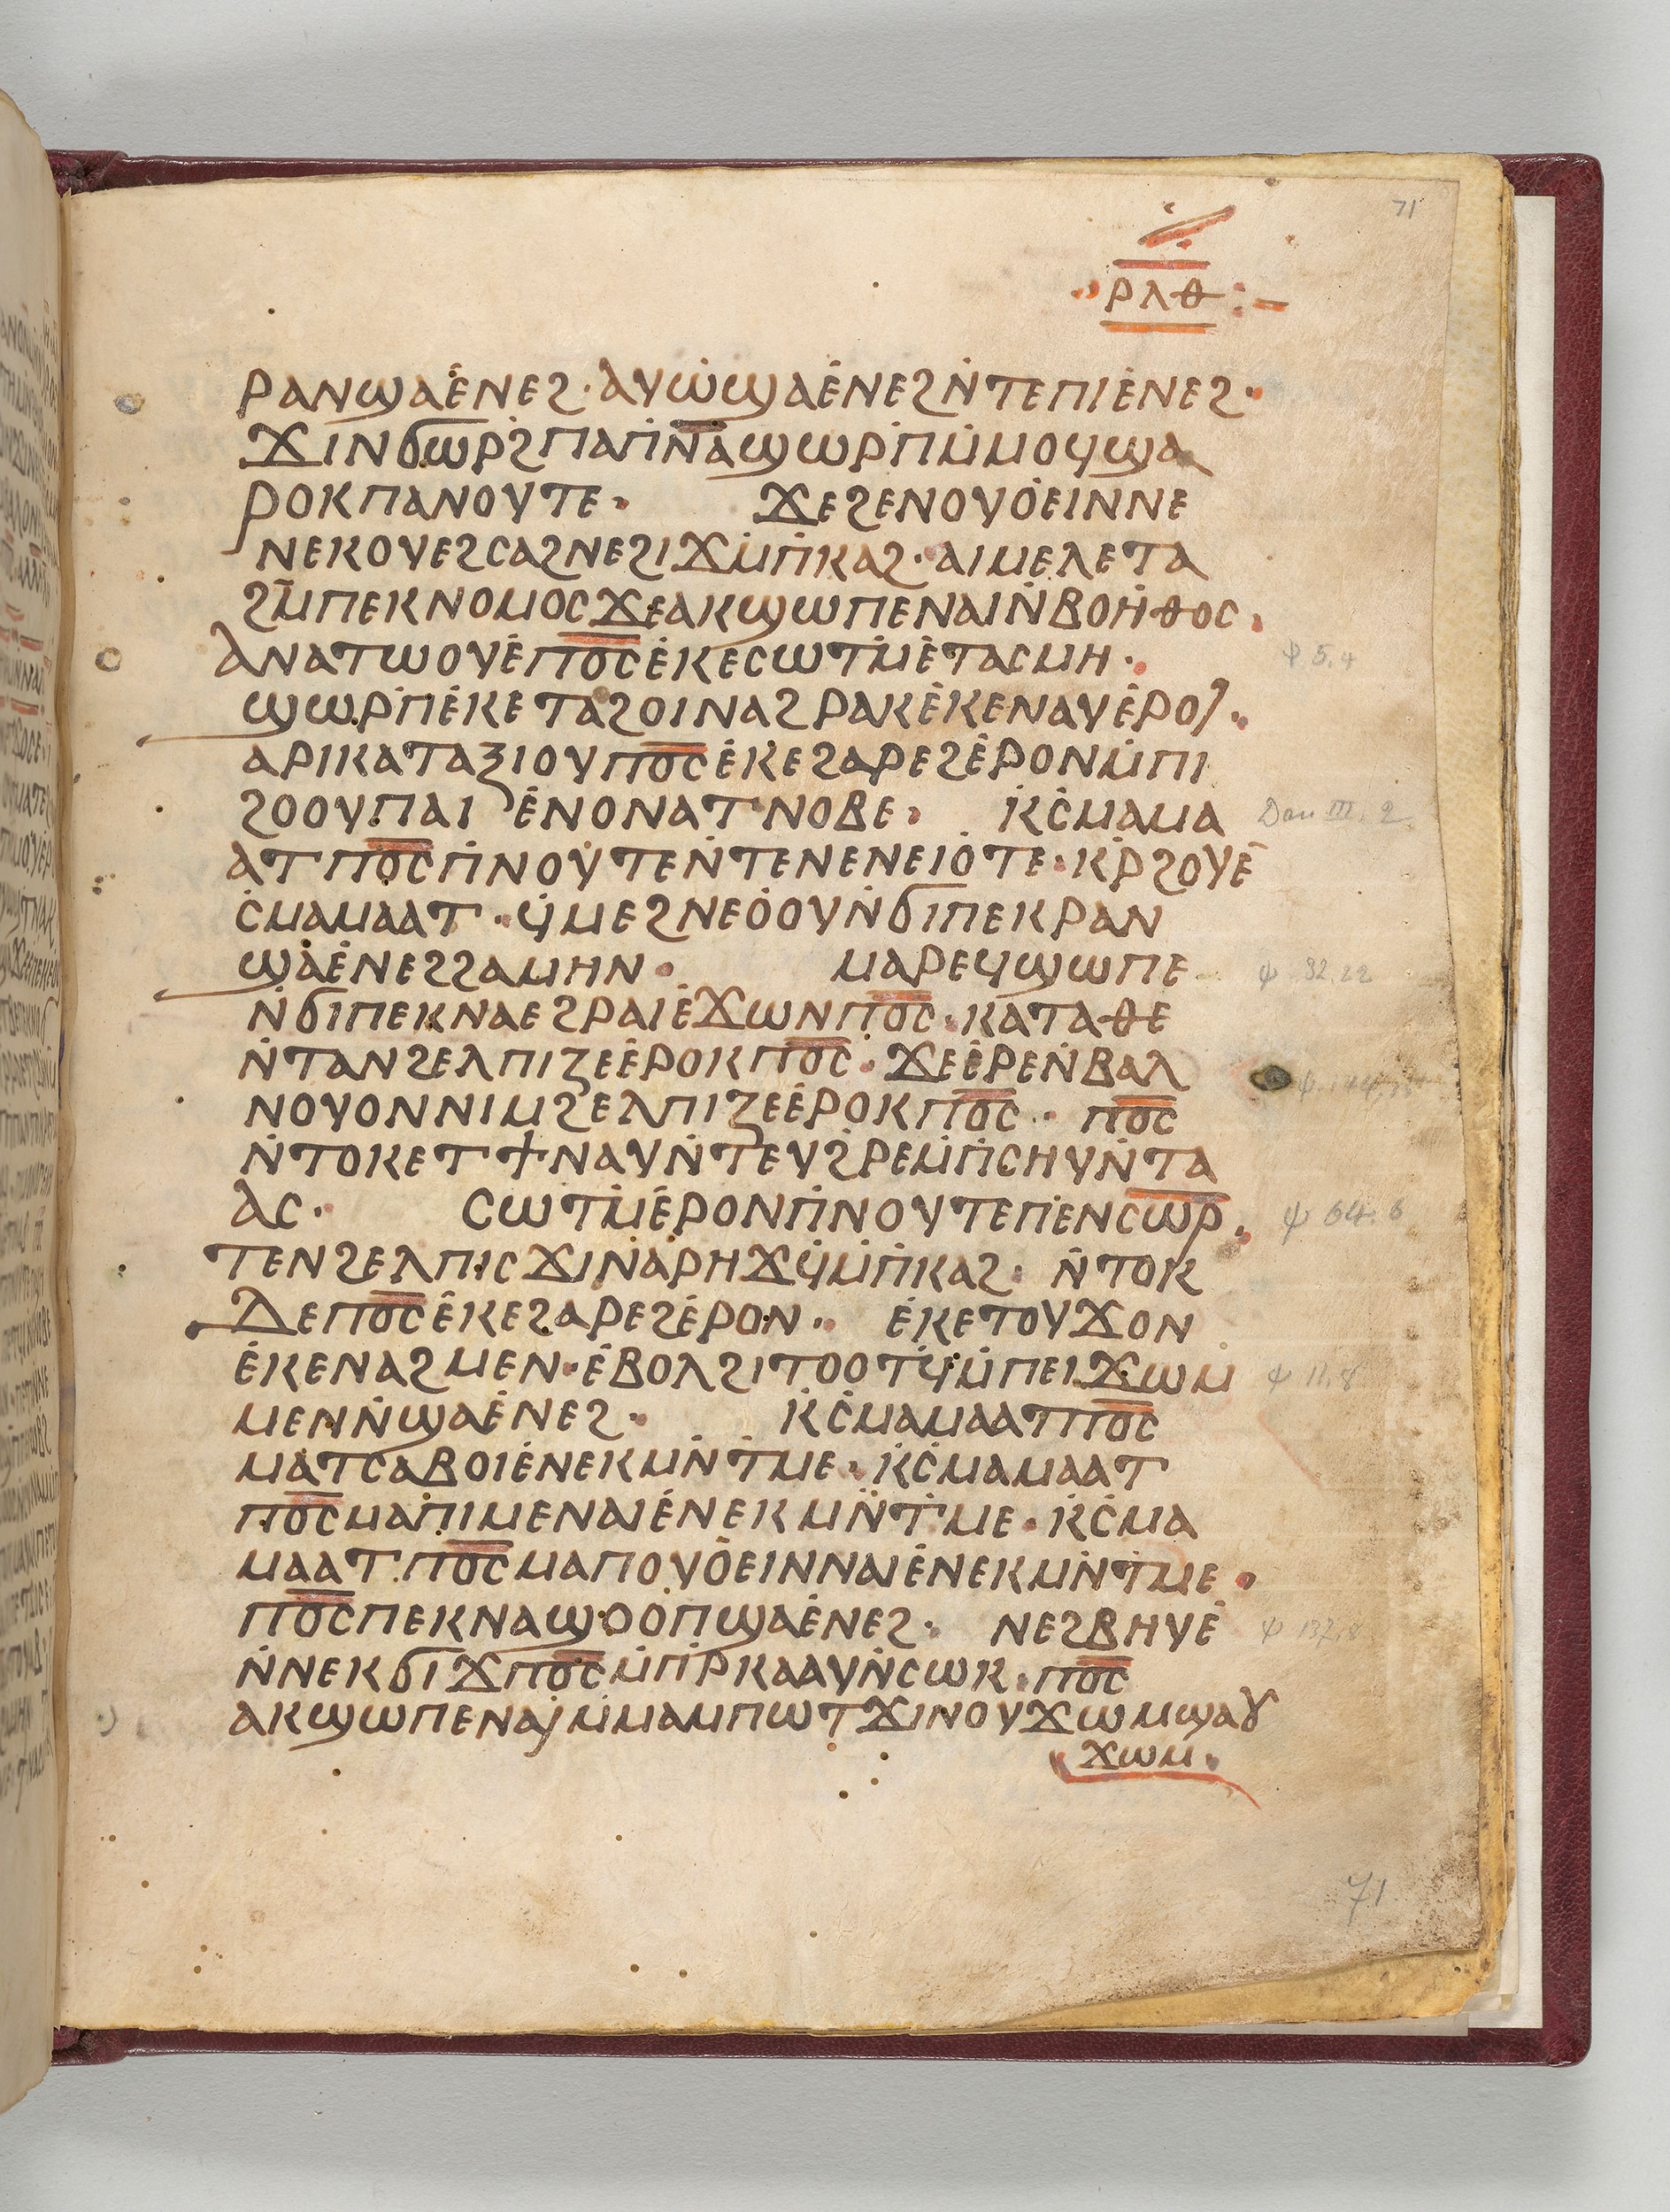 71
ⲣⲗⲑ
ⲣⲁⲛϣⲁⲉ̇ⲛⲉϩ· ⲁⲩⲱ̇ϣⲁⲉ̇ⲛⲉϩⲛ̇ⲧⲉⲡⲓⲉ̇ⲛⲉϩ·
ϫⲓⲛϭⲱⲣ̇ϩⲡⲁⲡ̅ⲛ̅ⲁ̅ϣⲱⲣⲡ̇ⲙ̇ⲙⲟϥϣⲁ
ⲣⲟⲕⲡⲁⲛⲟⲩⲧⲉ· ϫⲉϩⲉⲛⲟⲩⲟ̇ⲉⲓⲛⲛⲉ
ⲛⲉⲕⲟⲩⲉϩⲥⲁϩⲛⲉϩⲓϫⲙ̇ⲡ̇ⲕⲁϩ· ⲁⲓⲙⲉⲗⲉⲧⲁ
ϩⲙ̇ⲡⲉⲕⲛⲟⲙⲟⲥϫⲉⲁⲕϣⲱⲡⲉⲛⲁⲓⲛ̇ⲃⲟⲏ̇ⲑⲟⲥ·
ⲁⲛⲁⲧⲱⲟⲩⲉ̇ⲡ̅ⲟ̅ⲥ̅ⲉ̇ⲕⲉⲥⲱⲧⲙ̇ⲉ̇ⲧⲁⲥⲙⲏ·
ϣⲱⲣⲡ̇ⲉ̇ⲕⲉⲧⲁϩⲟⲓⲛⲁϩⲣⲁⲕⲉ̇ⲕⲉⲛⲁⲩⲉ̇ⲣⲟⲓ·
ⲁⲣⲓⲕⲁⲧⲁⲝⲓⲟⲩⲡ̅ⲟ̅ⲥ̅ⲉ̇ⲕⲉϩⲁⲣⲉϩⲉ̇ⲣⲟⲛⲙ̇ⲡⲓ
ϩⲟⲟⲩⲡⲁⲓ ⲉ̇ⲛⲟⲛⲁⲧⲛⲟⲃⲉ· ⲕ̇ⲥ̇ⲙⲁⲙⲁ
ⲁⲧⲡ̅ⲟ̅ⲥ̅ⲡ̇ⲛⲟⲩⲧⲉⲛ̇ⲧⲉⲛⲉⲛⲉⲓⲟ̇ⲧⲉ· ⲕⲣ̇ϩⲟⲩⲉ̇
ⲥ̇ⲙⲁⲙⲁⲁⲧ· ϥ̇ⲙⲉϩⲛⲉⲟ̇ⲟⲩⲛ̇ϭⲓⲡⲉⲕⲣⲁⲛ
ϣⲁⲉ̇ⲛⲉϩϩⲁⲙⲏⲛ· ⲙⲁⲣⲉϥϣⲱⲡⲉ
ⲛ̇ϭⲓⲡⲉⲕⲛⲁⲉϩⲣⲁⲓⲉ̇ϫⲱⲛⲡ̅ⲟ̅ⲥ̅· ⲕⲁⲧⲁⲑⲉ
ⲛ̇ⲧⲁⲛϩⲉⲗⲡⲓⲍⲉⲉ̇ⲣⲟⲕⲡ̅ⲟ̅ⲥ̅· ϫⲉⲉ̇ⲣⲉⲛ̇ⲃⲁⲗ
ⲛⲟⲩⲟⲛⲛⲓⲙϩⲉⲗⲡⲓⲍⲉⲉ̇ⲣⲟⲕⲡ̅ⲟ̅ⲥ̅·· ⲡ̅ⲟ̅ⲥ̅
ⲛ̇ⲧⲟⲕⲉⲧϯⲛⲁⲩⲛ̇ⲧⲉⲩϩ̇ⲣⲉⲙ̇ⲡ̇ⲥⲏⲩⲛ̇ⲧⲁ
ⲁⲥ· ⲥⲱⲧⲙ̇ⲉ̇ⲣⲟⲛⲡ̇ⲛⲟⲩⲧⲉⲡⲉⲛⲥ̅ⲱ̅ⲣ̅·
ⲧⲉⲛϩⲉⲗⲡⲓⲥϫⲓⲛⲁⲣⲏϫϥ̇ⲙ̇ⲡ̇ⲕⲁϩ· ⲛ̇ⲧⲟⲕ
ⲇⲉⲡ̅ⲟ̅ⲥ̅ⲉ̇ⲕⲉϩⲁⲣⲉϩⲉ̇ⲣⲟⲛ·· ⲉ̇ⲕⲉⲧⲟⲩϫⲟⲛ
ⲉ̇ⲕⲉⲛⲁϩⲙⲉⲛ· ⲉ̇ⲃⲟⲗϩⲓⲧⲟⲟⲧϥ̇ⲙ̇ⲡⲉⲓϫⲱⲙ
ⲙⲉⲛⲛ̇ϣⲁⲉ̇ⲛⲉϩ· ⲕ̇ⲥ̇ⲙⲁⲙⲁⲁⲧⲡ̅ⲟ̅ⲥ̅
ⲙⲁⲧⲥⲁⲃⲟⲓⲉ̇ⲛⲉⲕⲙⲛ̇ⲧⲙⲉ· ⲕ̇ⲥ̇ⲙⲁⲙⲁⲁⲧ
ⲡ̅ⲟ̅ⲥ̅ⲙⲁⲡⲓⲙⲉⲛⲁⲓⲉ̇ⲛⲉⲕⲙⲛ̇ⲧⲙⲉ· ⲕ̇ⲥ̇ⲙⲁ
ⲙⲁⲁⲧⲡ̅ⲟ̅ⲥ̅ⲙⲁⲡⲟⲩⲟ̇ⲉⲓⲛⲛⲁⲓⲉ̇ⲛⲉⲕⲙⲛ̇ⲧⲙⲉ·
ⲡ̅ⲟ̅ⲥ̅ⲡⲉⲕⲛⲁϣⲟⲟⲡϣⲁⲉ̇ⲛⲉϩ· ⲛⲉϩⲃⲏⲩⲉ̇
ⲛ̇ⲛⲉⲕϭⲓϫⲡ̅ⲟ̅ⲥ̅ⲙ̇ⲡ̇ⲣ̇ⲕⲁⲁⲩⲛ̇ⲥⲱⲕ· ⲡ̅ⲟ̅ⲥ̅
ⲁⲕϣⲱⲡⲉⲛⲁⲓⲙ̇ⲙⲁⲙⲡⲱⲧϫⲓⲛⲟⲩϫⲱⲙϣⲁⲩ
ϫⲱⲙ·
ψ 5.4
Dan III. 2
ψ 32.22
ψ 64.6
ψ 11.8
ψ 137.8
71